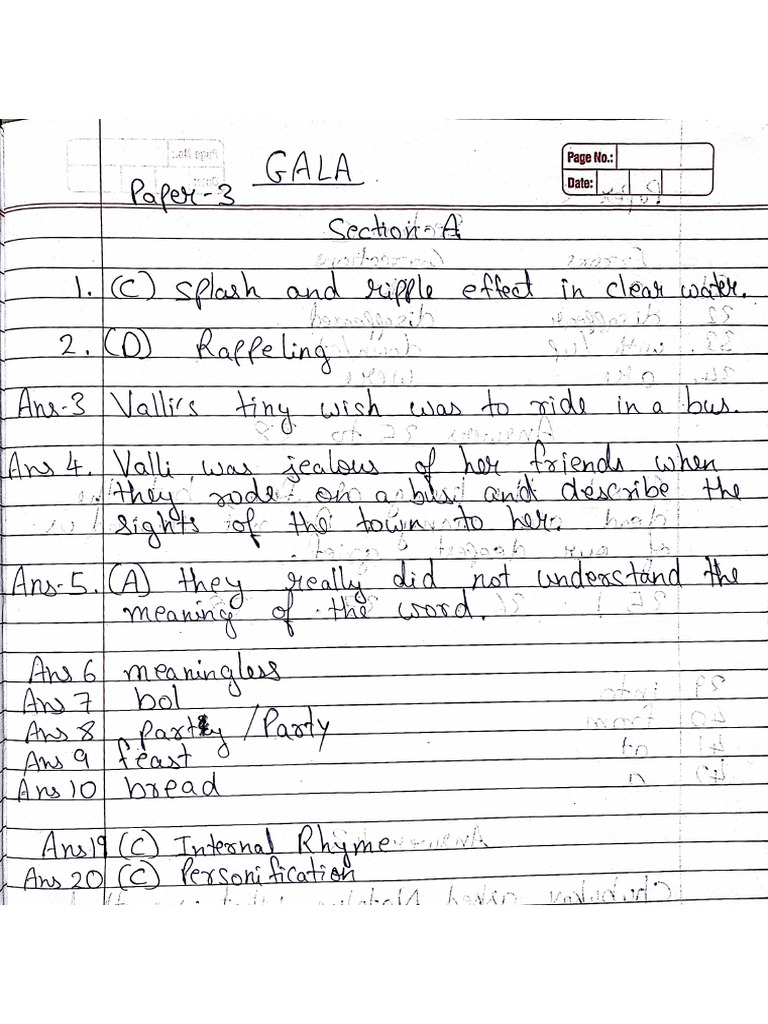 GALA
Page No.:
Date:
Paper-3
Section-A
1. (C) splash and ripple effect in clear water.
2. (D) Rappeling
Ans-3 Valli's tiny wish was to ride in a bus.
Ans 4. Valli was jealous of her friends when
they rode on a bus and describe the
sights of the town to her.
Ans-5. (A) they really did not understand the
meaning of the word.
Ans 6 meaningless
Ans 7 bol
Ans 8 party /Party
Ans 9 feast
Ans 10 bread
Ans 19 (C) Internal Rhyme
Ans 20 (C) Personification